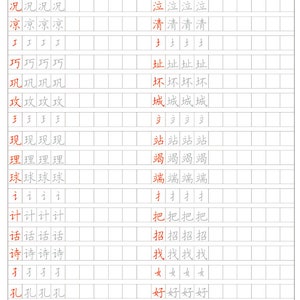 况况况况 泣泣泣泣
凉凉凉凉 清清清清
工工工 土土土
巧巧巧巧 址址址址
巩巩巩巩 坏坏坏坏
攻攻攻攻 城城城城
王王王 立立立
现现现现 站站站站
理理理理 竭竭竭竭
球球球球 端端端端
讠讠讠 扌扌扌
计计计计 把把把把
话话话话 招招招招
诗诗诗诗 找找找找
子子子 女女女
孔孔孔孔 好好好好